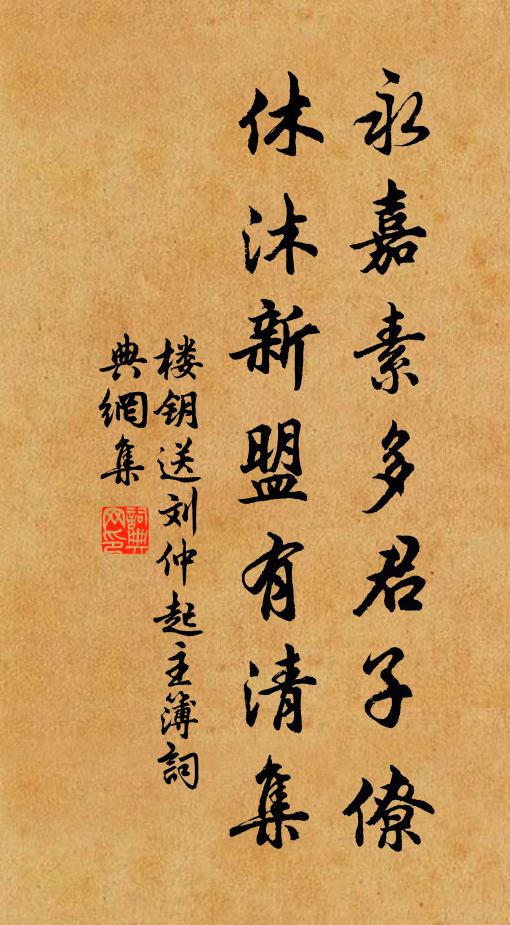 永嘉素多君子僚
休沐新盟有清集
楼钥送刘仲起主簿詞
典網集
詞典網印